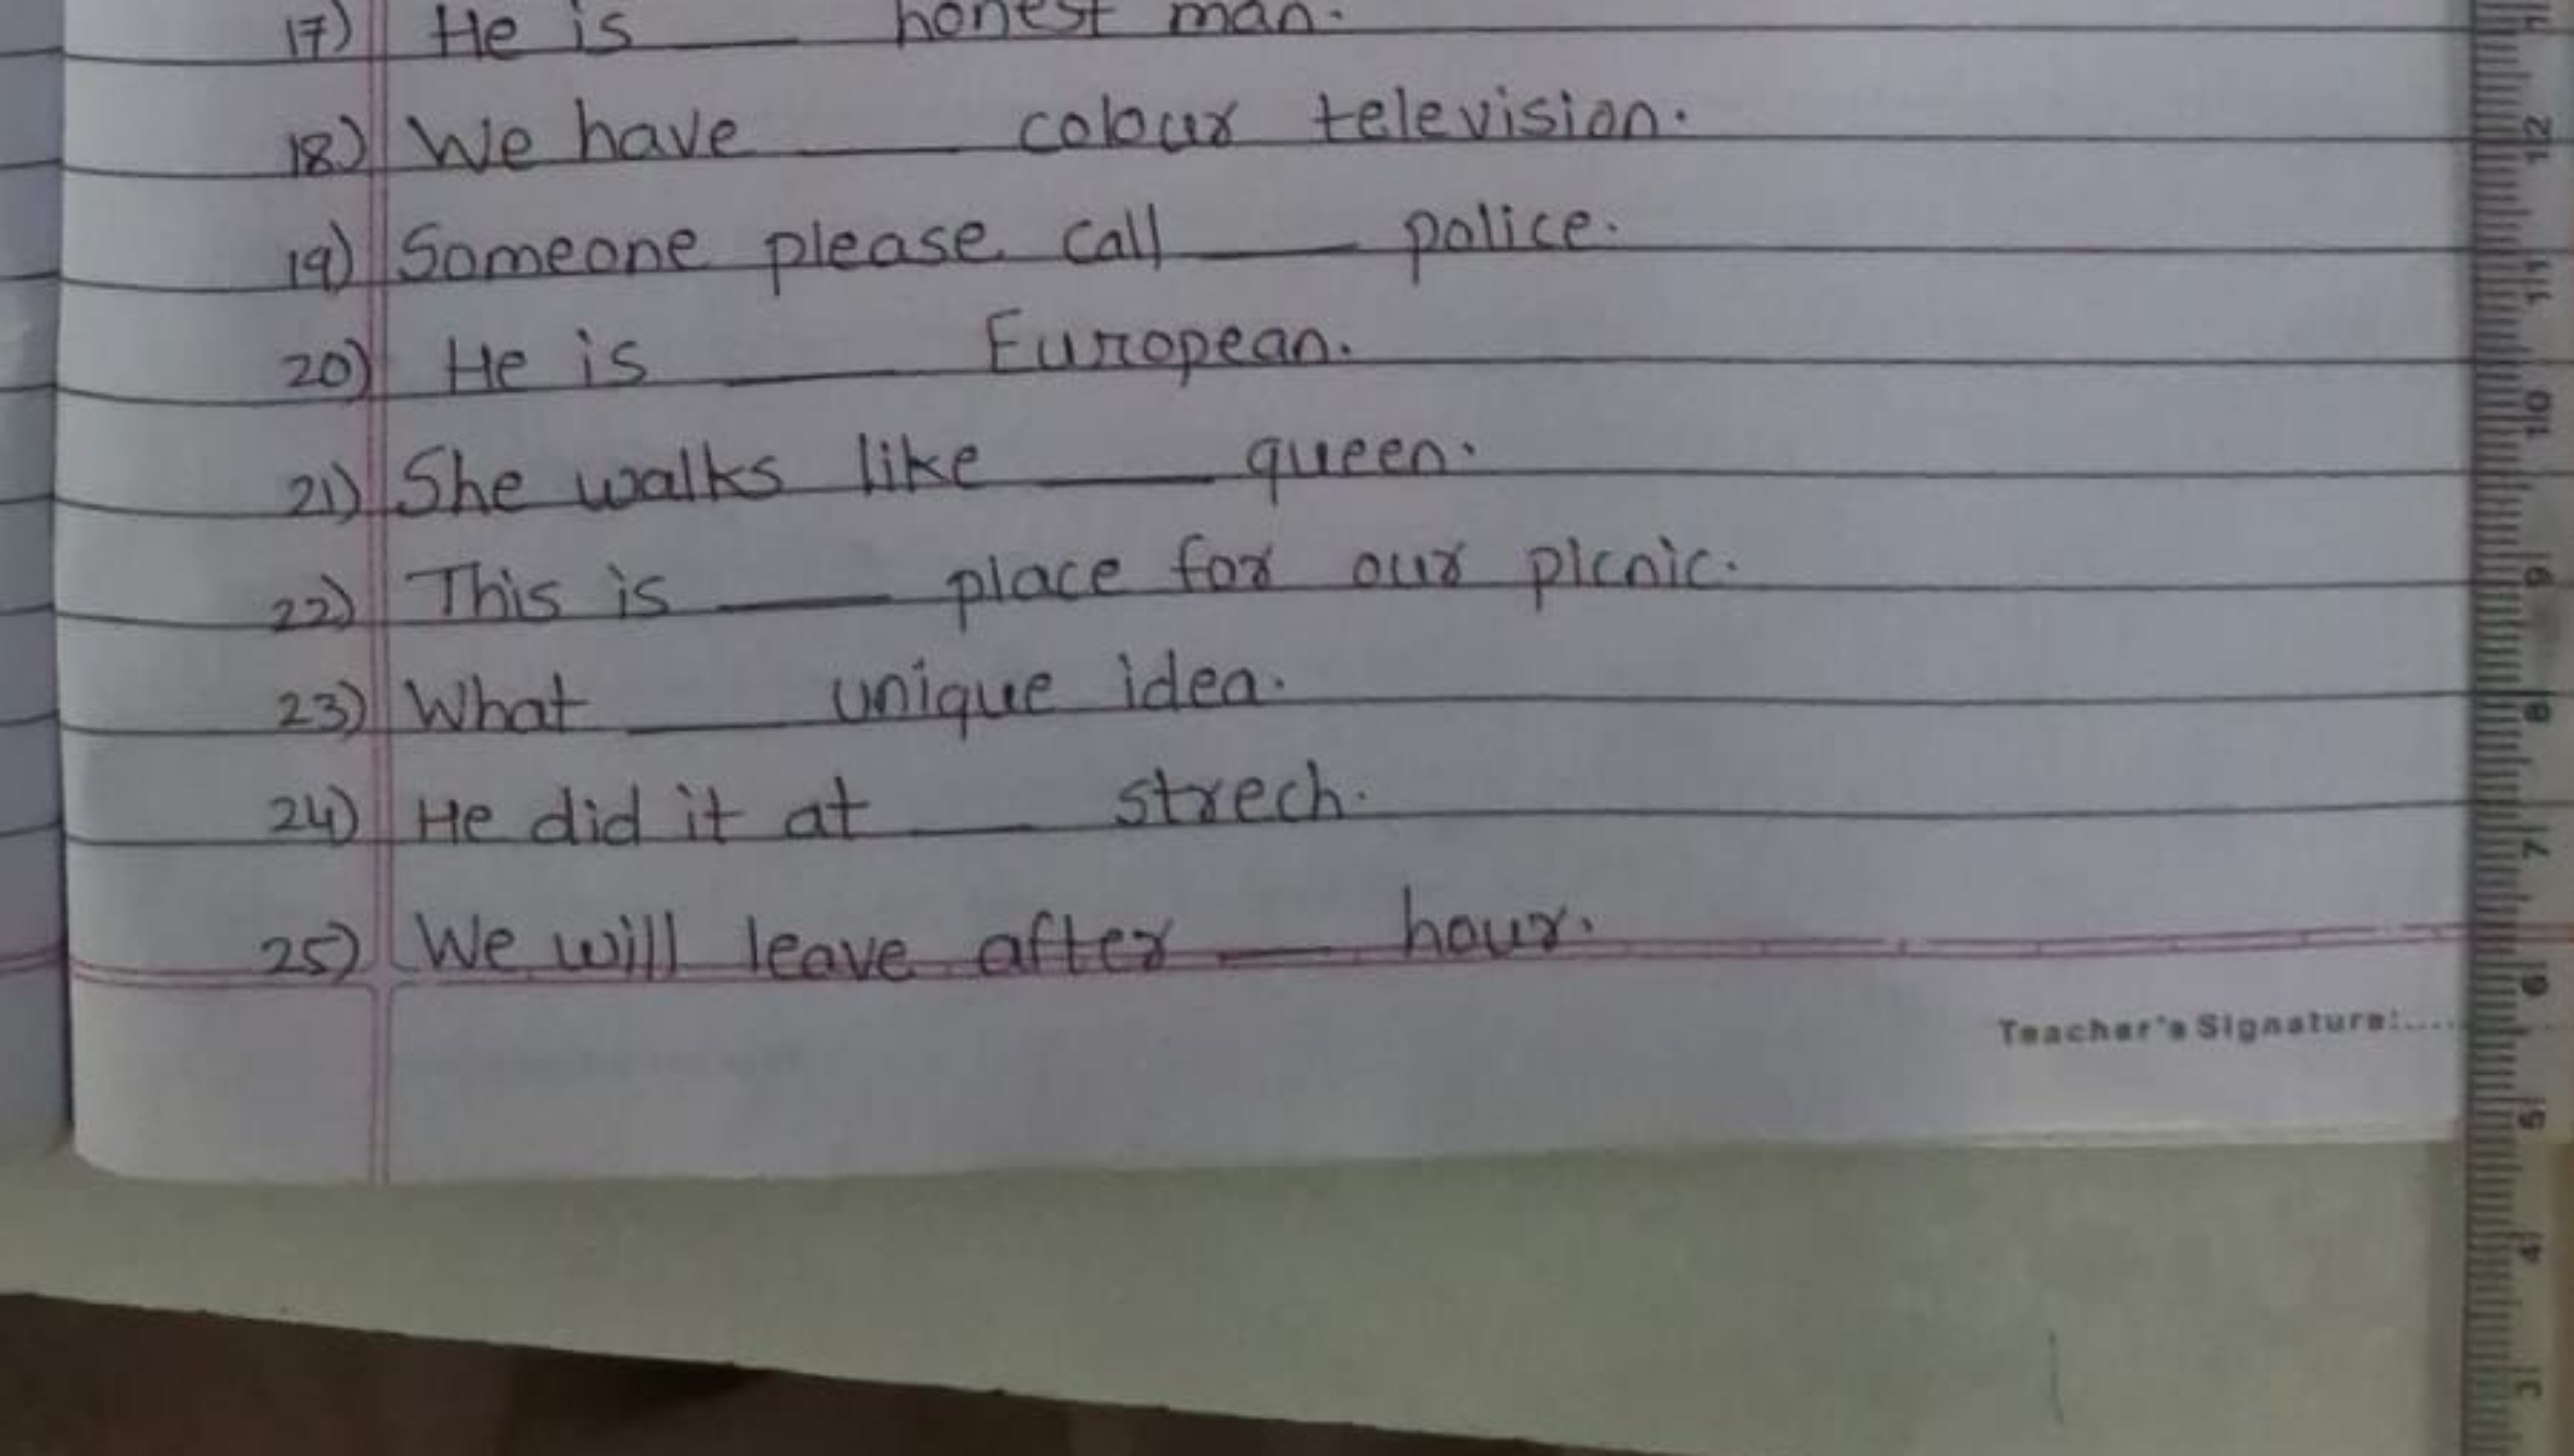 17) He is ___ honest man.
18) We have ___ colour television.
19) Someone please call ___ police.
20) He is ___ European.
21) She walks like ___ queen.
22) This is ___ place for our picnic.
23) What ___ unique idea.
24) He did it at ___ strech.
25) We will leave after ___ hour.
Teacher's Signature:....
12
11
10
9
8
7
6
5
4
3